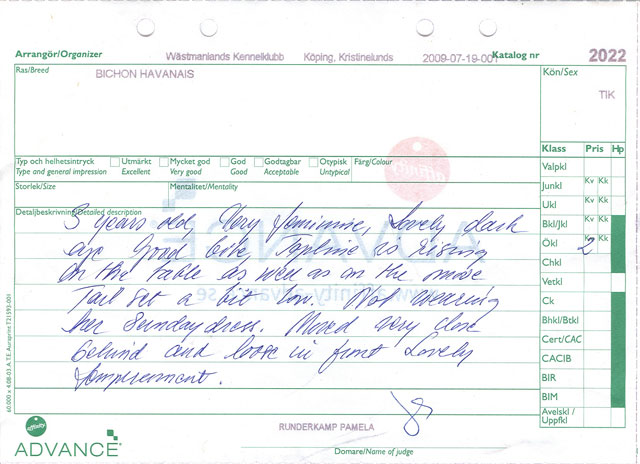 Arrangör/Organizer Västmanlands Kennelklubb Köping, Kristinelunds 2009-07-19-001 Katalog nr 2022
Ras/Breed BICHON HAVANAIS Kön/Sex
TIK
Klass Pris Hp
Typ och helhetsintryck Utmärkt Mycket god God Godtagbar Otypisk Färg/Colour
Type and general impression Excellent Very good Good Acceptable Untypical
Storlek/Size Mentalitet/Mentality
Detaljbeskrivning/Detailed description
3 years old, Very feminine, Lovely dark
eye Good bite, Topline is rising
on the table as well as on the move
Tail set a bit low. Not wearing
her Sunday dress. Moved very close
behind and loose in front Lovely
temperement.
Valpkl
Junkl Kv Kk
Ukl Kv Kk
Bkl/Jkl Kv Kk
Ökl Kv Kk 2
Chkl
Vetkl
Ck
Bhkl/Btkl
Cert/CAC
CACIB
BIR
BIM
Avelskl /
Uppfkl
RUNDERKAMP PAMELA
Domare/Name of judge
affinity
ADVANCE
60.000 x 4.08-03 A.T.E. Autoprint T21393-001
affinity
ADVANCE
www.affinity-advance.se